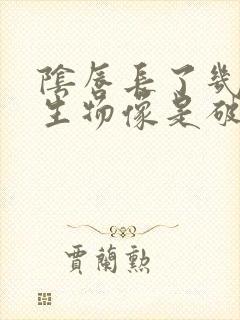 陰唇長了幾
生物像是破
賈蘭勲